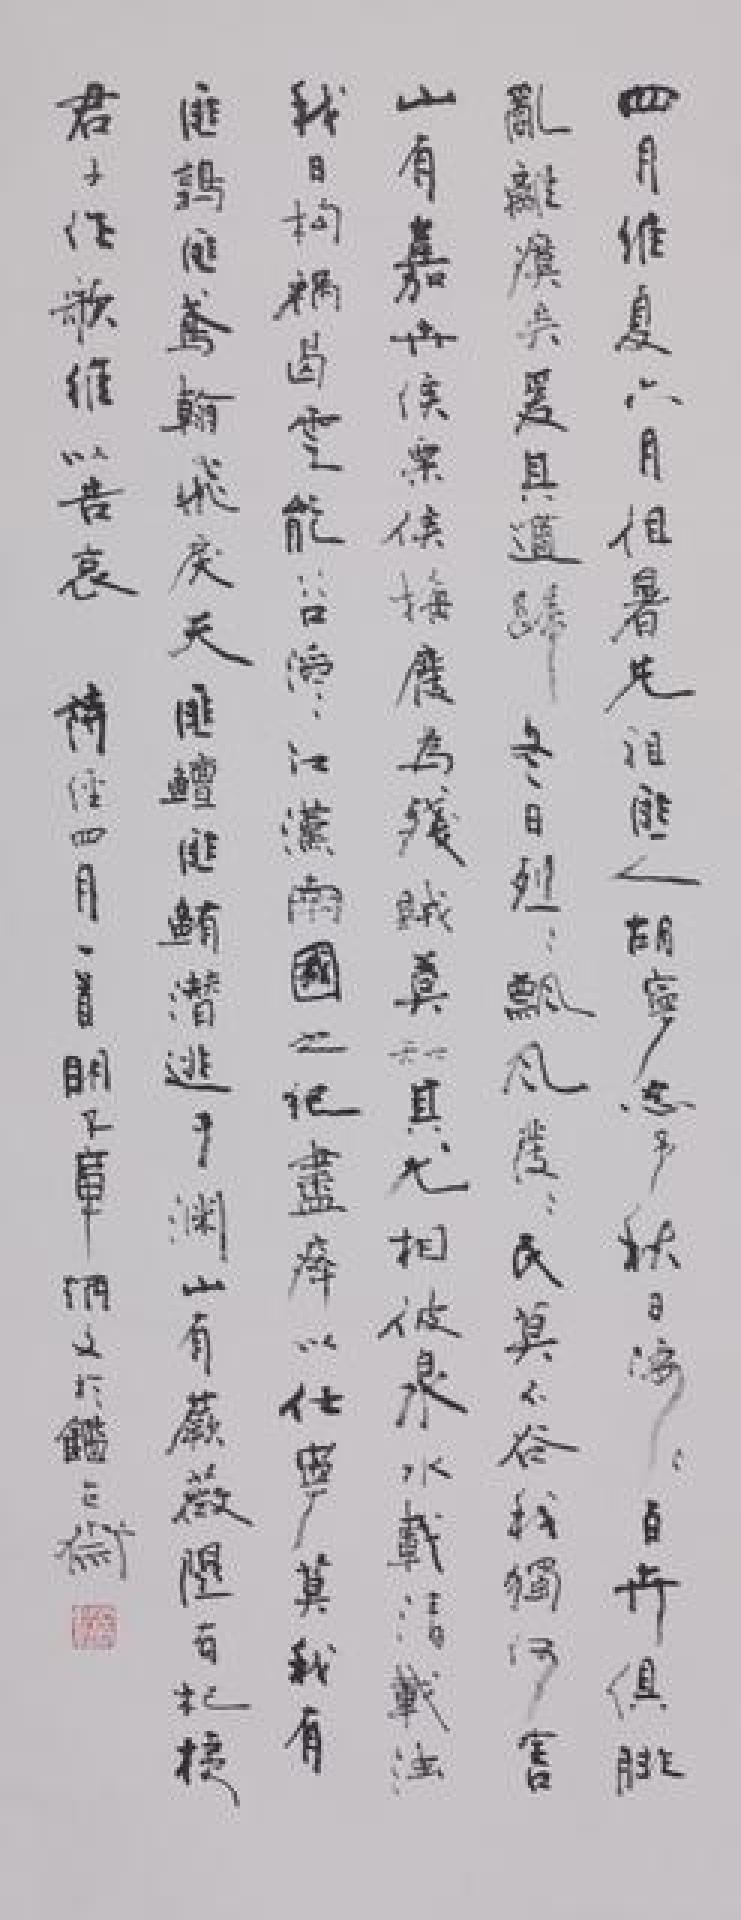 四月維夏六月徂暑先祖匪人胡寧忍予秋日凄〻百卉俱腓
亂離瘼矣爰其適歸冬日烈〻飄風發〻民莫不穀我獨何害
山有嘉卉侯栗侯梅廢為殘賊莫知其尤相彼泉水載清載濁
我日构禍曷云能谷滔〻江漢南國之紀盡瘁以仕寧莫我有
匪鶉匪鳶翰飛戾天匪鱣匪鮪潛逃于淵山有蕨薇隰有杞桋
君子作歌維以告哀 詩經四月一首 於鑑